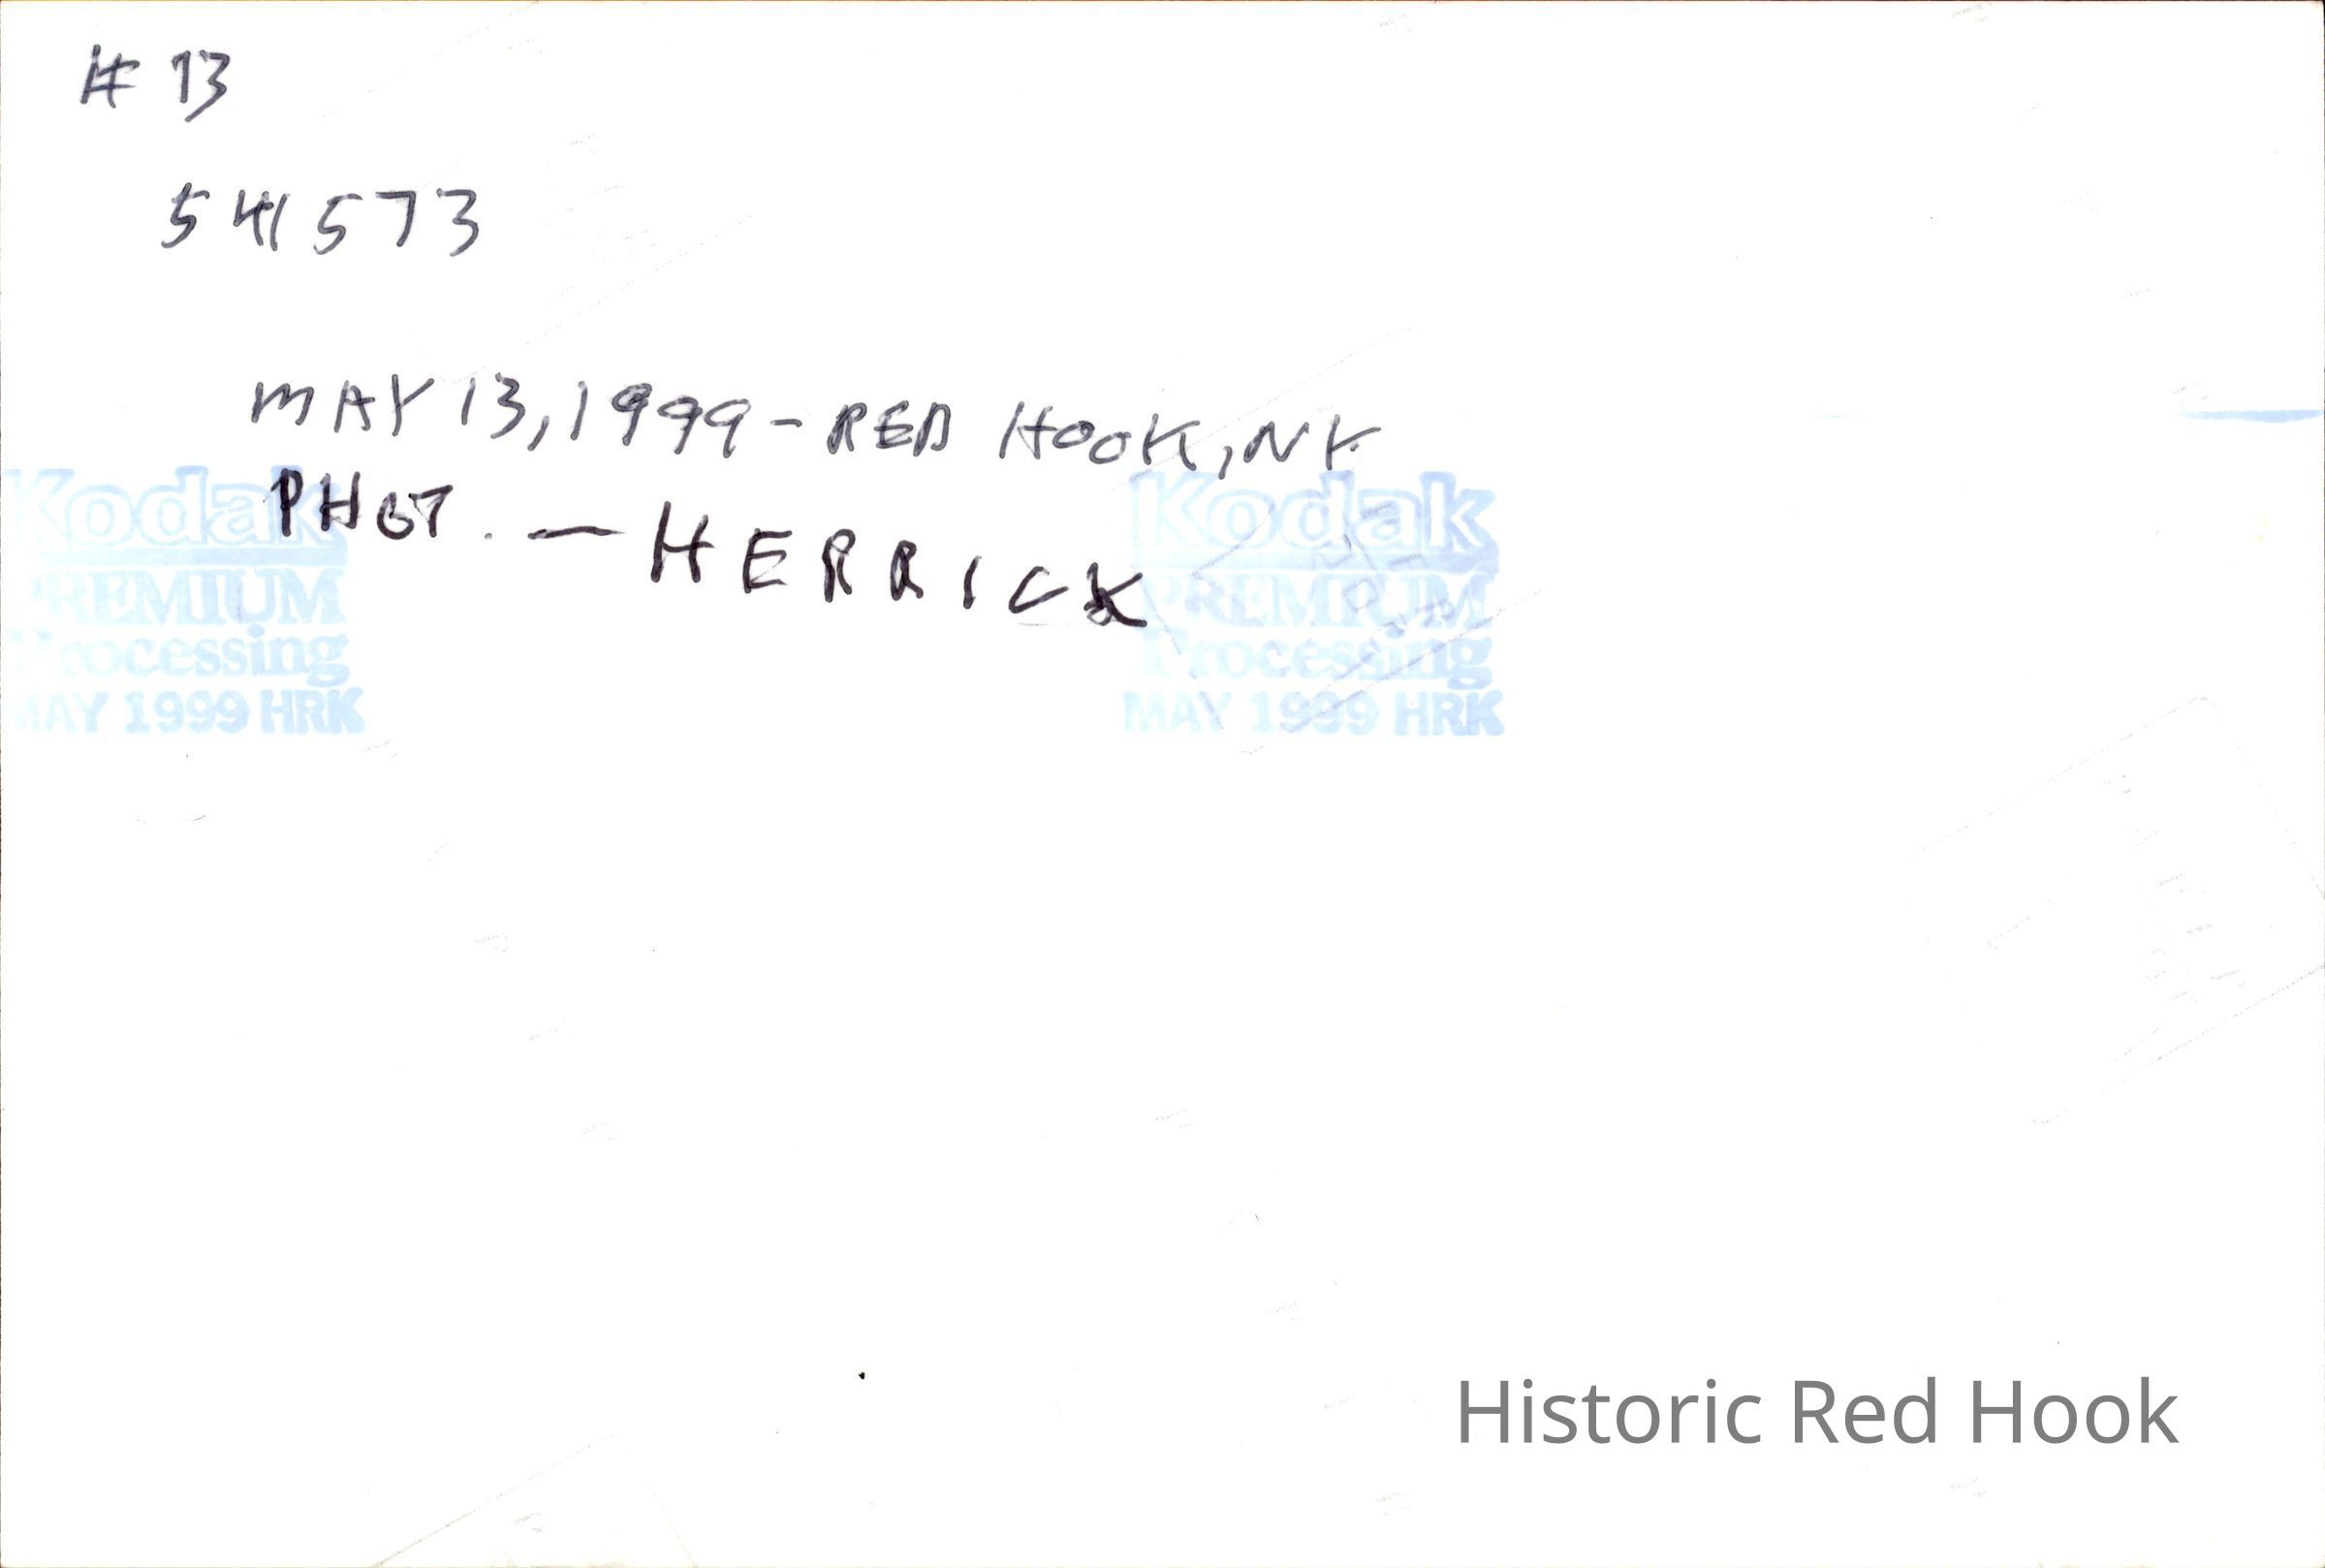 # 13
541573
MAY 13, 1999 - RED HOOK, NY.
PHOT. — HERRICK
Kodak
PREMIUM
Processing
MAY 1999 HRK
Kodak
PREMIUM
Processing
MAY 1999 HRK
Historic Red Hook